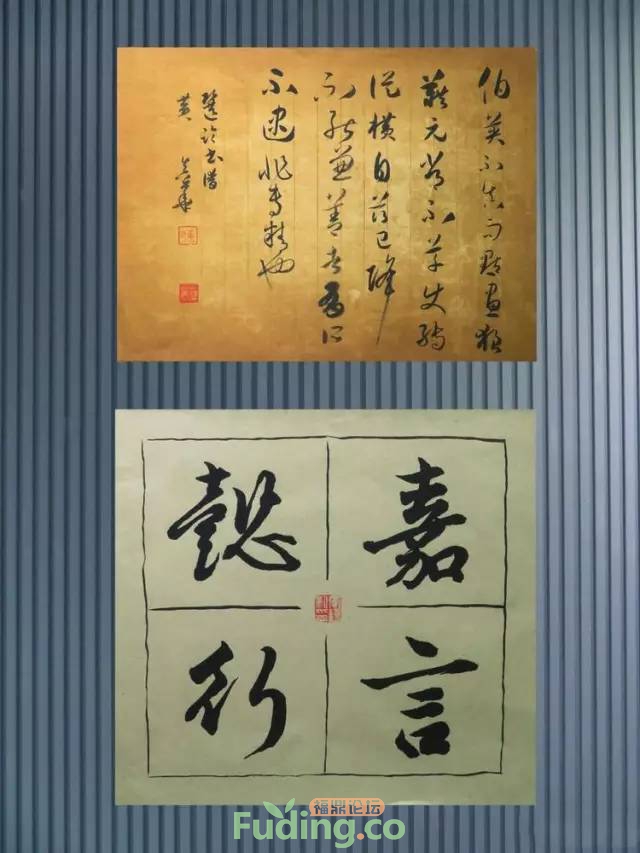 伯英不真而點畫狼
藉元常不草使轉
從橫自茲已降
不能兼善者有所
不逮非專精也
書譜
黄
嘉言
懿行
福鼎论坛
Fuding.co